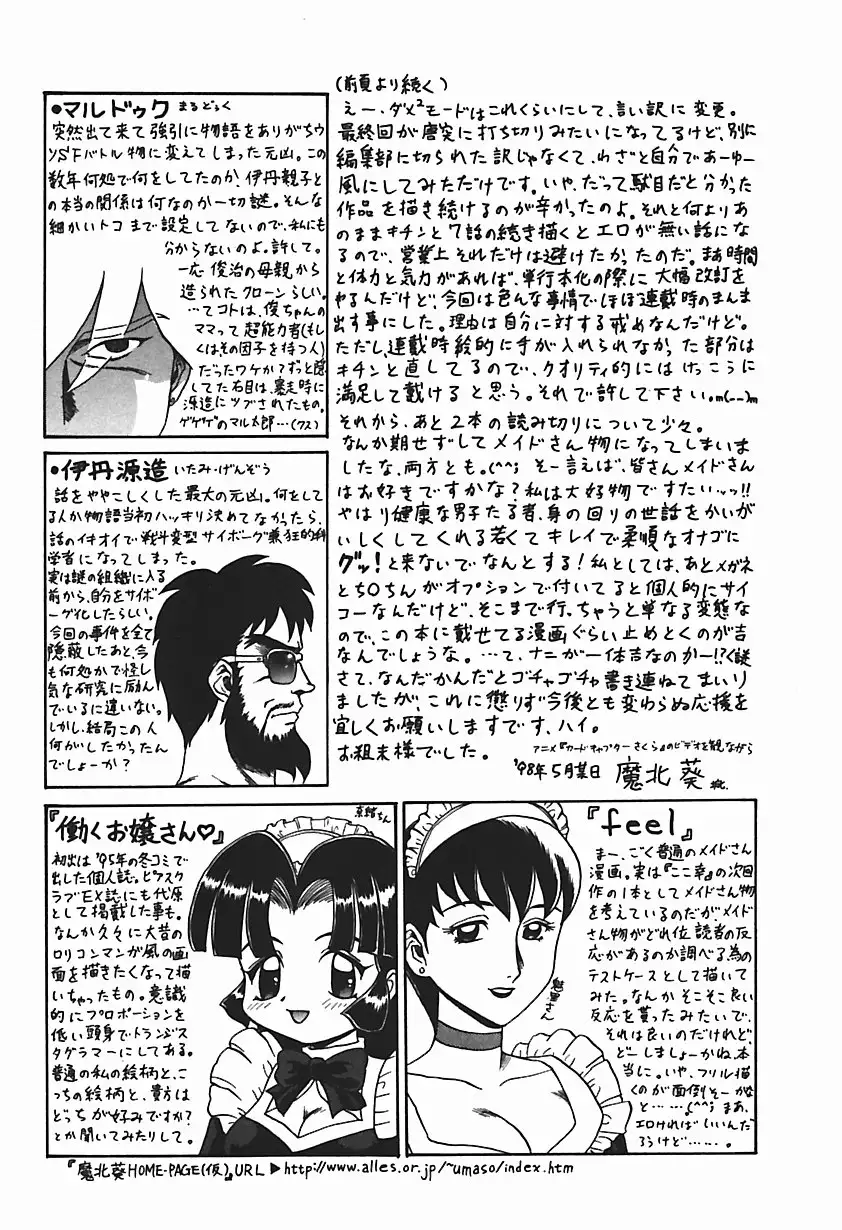 (前頁より続く)
えー、ダメ²モードはこれくらいにして、言い訳に変更。
最終回が唐突に打ち切りみたいになってるけど、別に
編集部に切られた訳じゃなくて、わざと自分であーゆー
風にしてみただけです。いや、だって駄目だと分かった
作品を描き続けるのが辛かったのよ。それと何よりあ
のままキチンと7話の続き描くとエロが無い話にな
るので、営業上それだけは避けたかったのだ。まあ時間
と体力と気力があれば、単行本化の際に大幅改訂を
やるんだけど、今回は色んな事情でほぼ連載時のまんま
出す事にした。理由は自分に対する戒めなんだけど。
ただし、連載時絵的に手が入れられなかった部分は
キチンと直してるので、クオリティ的にはけっこうに
満足して戴けると思う。それで許して下さい。m(__)m
それから、あと2本の読み切りについて少々。
なんか期せずしてメイドさん物になってしまいま
したな、両方とも。(^^; そー言えば、皆さんメイドさん
はお好きですかな?私は大好物ですたいッッ!!
やはり健康な男子たる者、身の回りの世話をかいが
いしくしてくれる若くてキレイで柔順なオナゴに
グッ!と来ないでなんとする!私としては、あとメガネ
とち○ちんがオプションで付いてると個人的にサイ
コーなんだけど、そこまで行っちゃうと単なる変態な
ので、この本に載せてる漫画ぐらい止めとくのが吉
なんでしょうな。…って、ナニが一体吉なのかー!?
さて、なんだかんだとゴチャゴチャ書き連ねてまいり
ましたが、これに懲りず今後とも変わらぬ応援を
宜しくお願いしますです、ハイ。
お粗末様でした。
アニメ『カードキャプターさくら』のビデオを観ながら
'98年5月某日 魔北葵
●マルドゥク まるどぅく
突然出て来て強引に物語をありがちな
SFバトル物に変えてしまった元凶。この
数年何処で何をしてたのか、伊丹親子と
の本当の関係は何なのか一切謎。そんな
細かいトコまで設定してないので、私にも
分からないのよ。許して。
一応俊治の母親から
造られたクローンらしい。
…てコトは、俊ちゃんの
ママって超能力者(もし
くは、その因子を持つ人)
だったワケか?ずっと隠
してた右目は、暴走時に
源造にツブされたもの。
ゲゲゲのマル太郎…(クス)
●伊丹源造 いたみ・げんぞう
話をややこしくした最大の元凶。何をして
る人か物語当初ハッキリ決めてなかったら、
話のイキオイで戦斗変型サイボーグ兼狂的科
学者になってしまった。
実は謎の組織に入る
前から、自分をサイボ
ーグ化したらしい。
今回の事件を全て
隠蔽したあと、今
も何処かで怪し
気な研究に励ん
でいるに違いない。
しかし、結局この人
何がしたかったん
でしょーか?
『働くお嬢さん♡』
初出は'95年の冬コミで
出した個人誌。ピアスク
ラブEX誌にも代原
として掲載した事も。
なんか久々に大昔の
ロリコンマンガ風の画
面を描きたくなって描
いちゃったもの。意識
的にプロポーションを
低い頭身でトランジス
タグラマーにしてある。
普通の私の絵柄と、こ
っちの絵柄と、貴方は
どっちが好みですか?
とか聞いてみたりして。
『feel』
まー、ごく普通のメイドさん
漫画。実は『ここ幸』の次回
作の1本としてメイドさん物
を考えているのだが、メイド
さん物がどれ位読者の反
応があるのか調べる為の
テストケースとして描いて
みた。なんかそこそこ良い
反応を貰ったみたいで、
それは良いのだけれど、
どーしましょーかね、本
当に。いや、フリル描
くのが面倒そーかな
と……(^^; まあ、
エロければいいんだ
ろうけど……。
『魔北葵HOME-PAGE(仮)』URL ▶http://www.alles.or.jp/~umaso/index.htm